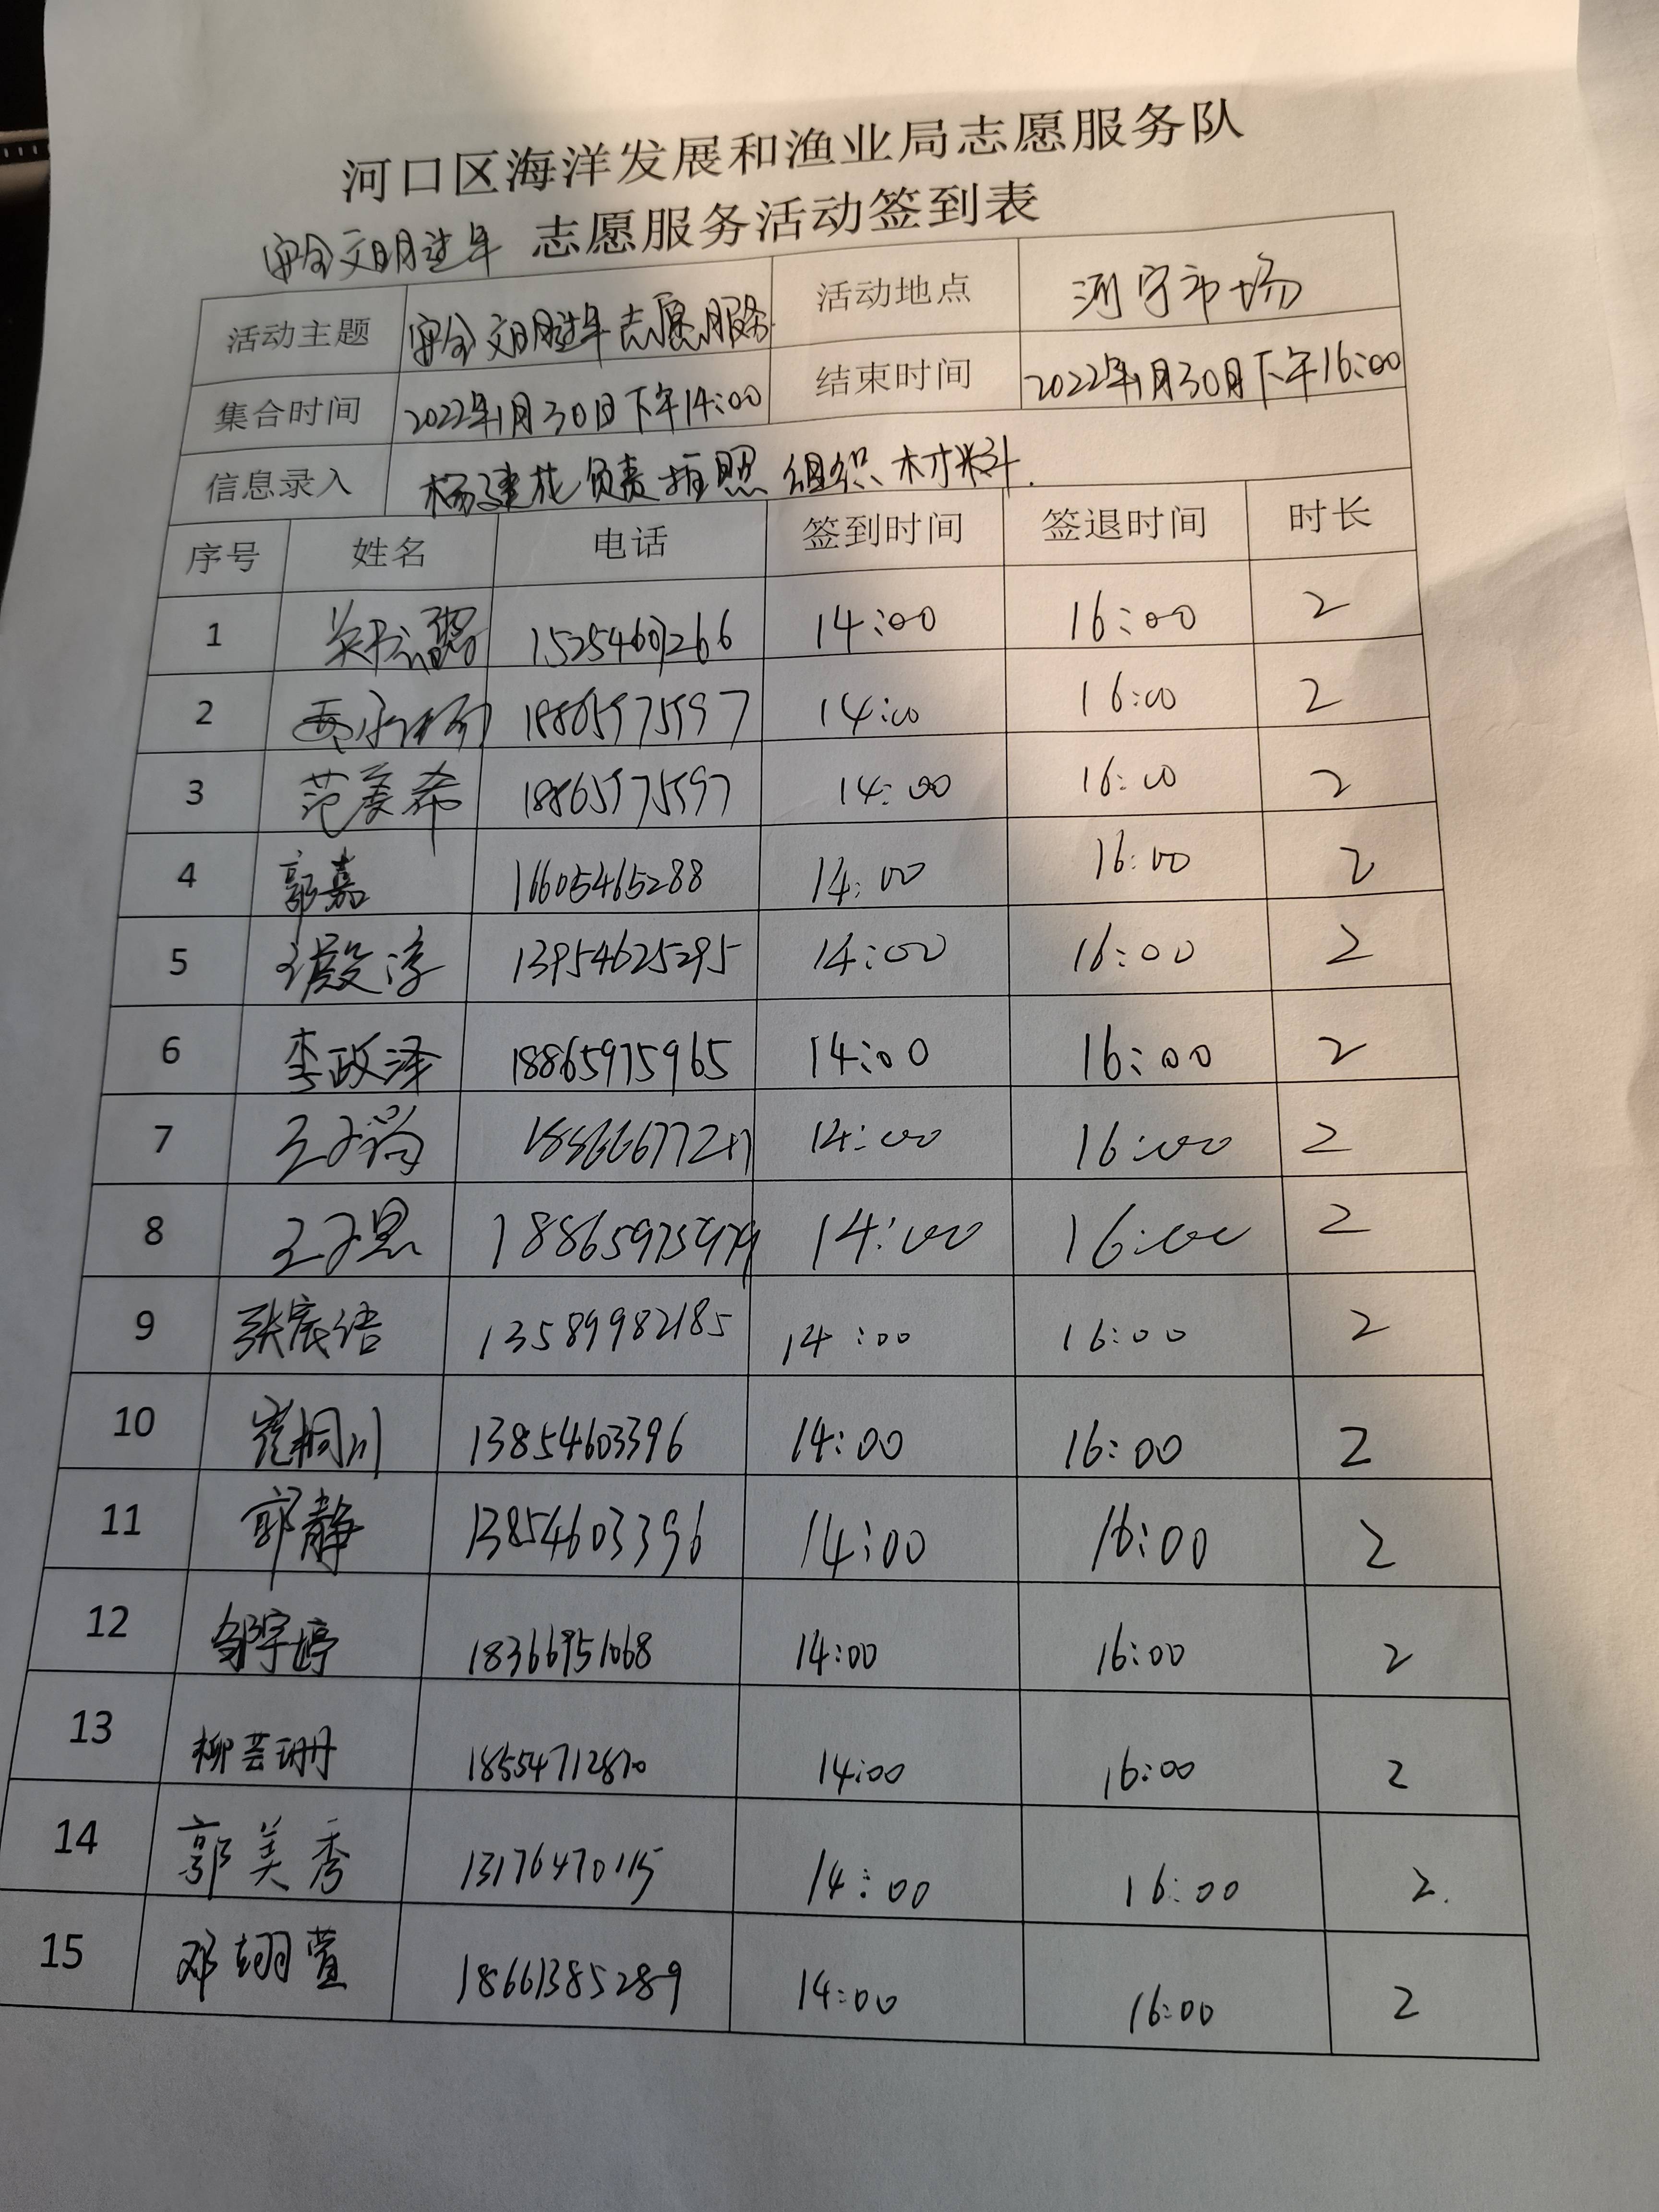 河口区海洋发展和渔业局志愿服务队
安全文明过年 志愿服务活动签到表
活动主题 安全文明过年志愿服务 活动地点 河宁市场
集合时间 2022年1月30日下午14:00 结束时间 2022年1月30日下午16:00
信息录入 杨建花负责拍照 组织材料.
序号 姓名 电话 签到时间 签退时间 时长
1 14:00 16:00 2
2 18865975597 14:00 16:00 2
3 范姜希 18865975597 14:00 16:00 2
4 郭嘉 16605465288 14:00 16:00 2
5 13954625295 14:00 16:00 2
6 李政泽 18865975965 14:00 16:00 2
7 14:00 16:00 2
8 王子恩 14:00 16:00 2
9 张宸语 13589982185 14:00 16:00 2
10 崔桐川 13854603396 14:00 16:00 2
11 郭静 13854603396 14:00 16:00 2
12 邹宇婷 18366951068 14:00 16:00 2
13 柳芸珊 18554712870 14:00 16:00 2
14 郭美秀 13176470115 14:00 16:00 2.
15 邓翊萱 18661385289 14:00 16:00 2